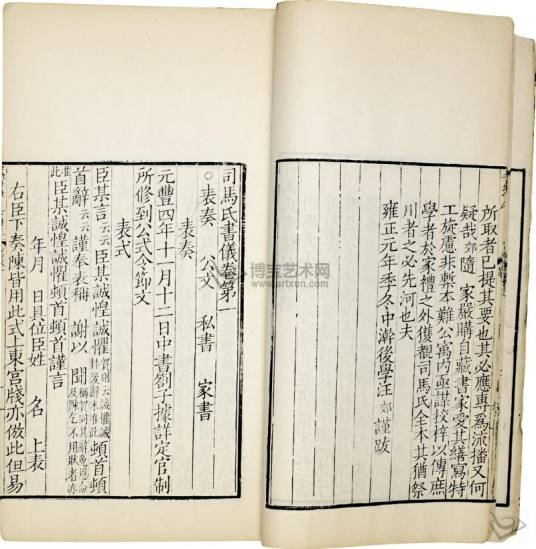 所取者已提其要也其必應專爲流播又何
疑哉郊隨 家嚴購自藏書家愛其繕寫特
工旋慮非槧本難公寓内亟謀授梓以傳庶
學者於家禮之外獲覩司馬氏全本其猶祭
川者之必先河也夫
雍正元年季久中澣後學汪 郊 謹跋
司馬氏書儀卷第一
○表奏 公文 私書 家書
表奏
元豐四年十一月十二日中書劄子據詳定官制
所修到公式令節文
表式
臣某言云云臣某誠惶誠懼
頓首頓
首辭云云謹奉表稱 謝以 聞
臣某誠惶誠懼頓首頓首謹言
年月 日具位臣姓 名 上表
右臣下奏陳皆用此式上東宮牋亦倣此但易
博宝艺术网
www.artxun.com